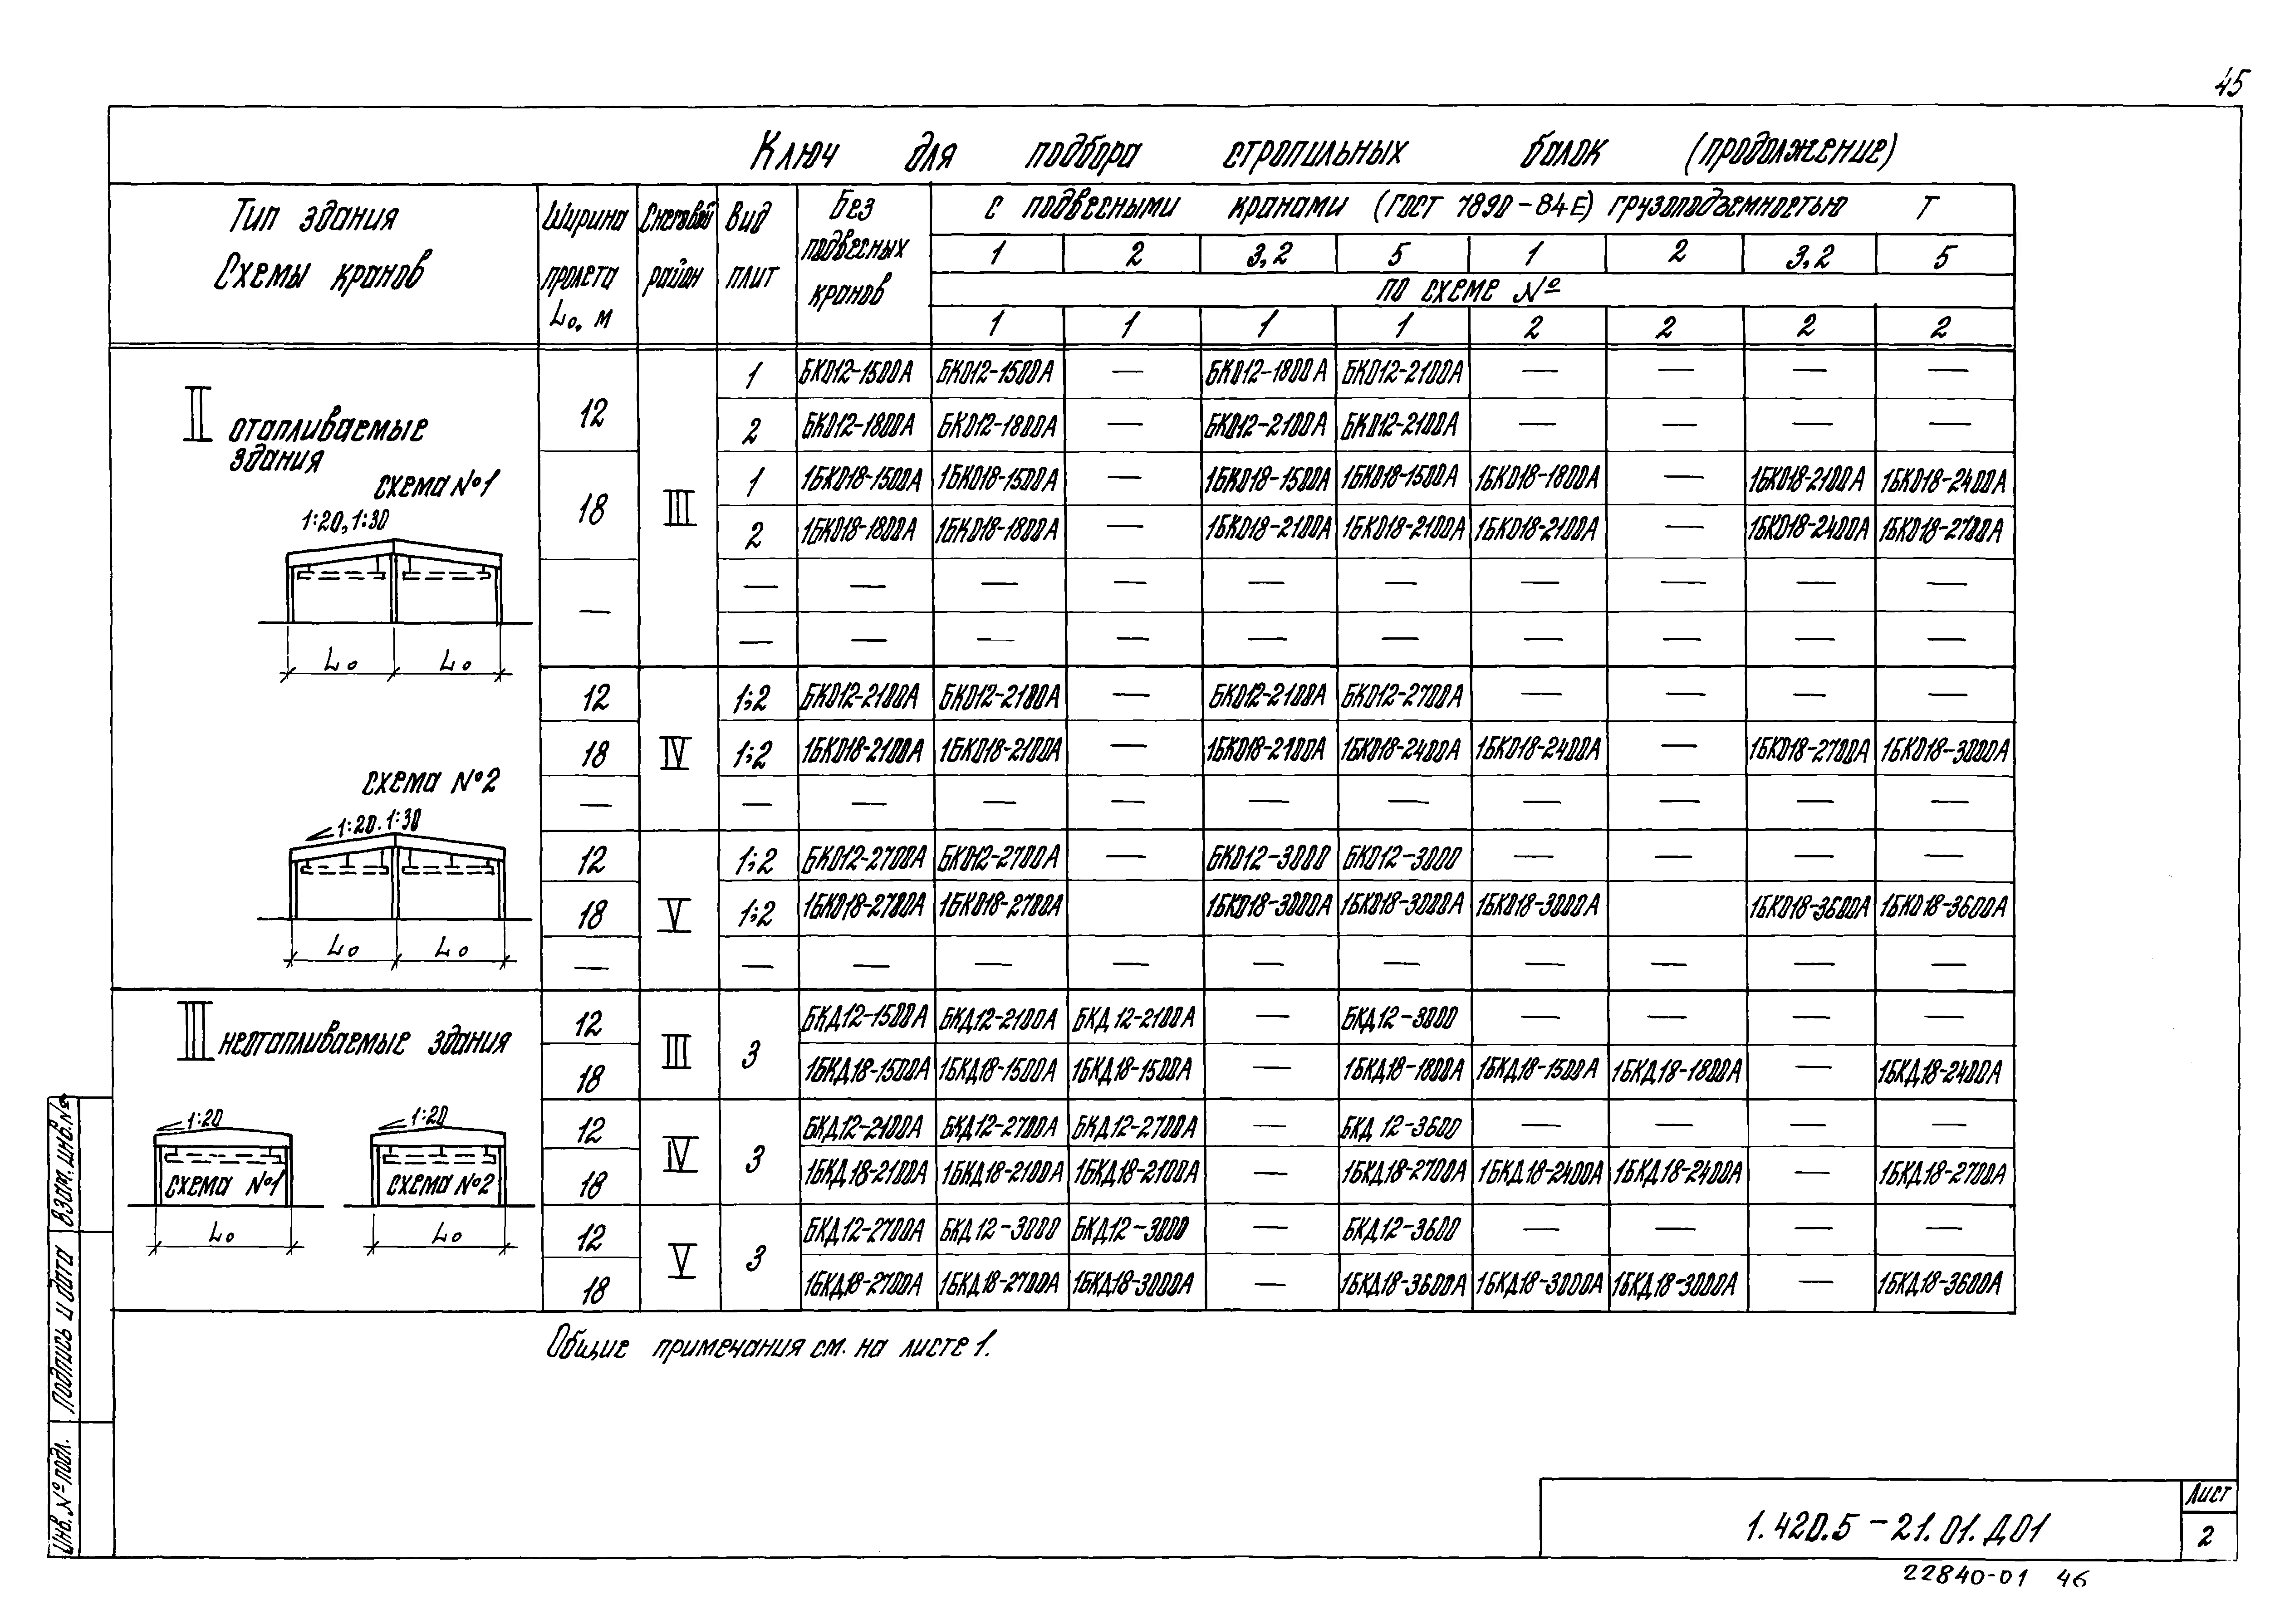 45
Ключ для подбора стропильных балок (продолжение)
Тип здания
Схемы кранов
Ширина пролета L₀, м
Снеговой район
Вид плит
Без подвесных кранов
с подвесными кранами (ГОСТ 7890-84Е) грузоподъемностью Т
1 2 3,2 5 1 2 3,2 5
по схеме №
1 1 1 1 2 2 2 2
II отапливаемые здания
схема №1
1:20, 1:30
L₀ L₀
схема №2
1:20. 1:30
L₀ L₀
12 III 1 БК012-1500А БК012-1500А — БК012-1800А БК012-2100А — — — —
2 БК012-1800А БК012-1800А — БК012-2100А БК012-2100А — — — —
18 1 1БК018-1500А 1БК018-1500А — 1БК018-1500А 1БК018-1500А 1БК018-1800А — 1БК018-2100А 1БК018-2400А
2 1БК018-1800А 1БК018-1800А — 1БК018-2100А 1БК018-2100А 1БК018-2100А — 1БК018-2400А 1БК018-2700А
— — — — — — — — — — —
— — — — — — — — — —
12 IV 1;2 БК012-2100А БК012-2100А — БК012-2100А БК012-2700А — — — —
18 1;2 1БК018-2100А 1БК018-2100А — 1БК018-2100А 1БК018-2400А 1БК018-2400А — 1БК018-2700А 1БК018-3000А
— — — — — — — — — — —
12 V 1;2 БК012-2700А БК012-2700А — БК012-3000 БК012-3000 — — — —
18 1;2 1БК018-2700А 1БК018-2700А 1БК018-3000А 1БК018-3000А 1БК018-3000А 1БК018-3600А 1БК018-3600А
— — — — — — — — — — —
III неотапливаемые здания
1:20 1:20
схема №1 схема №2
L₀ L₀
12 III 3 БКД12-1500А БКД12-2100А БКД12-2100А — БКД12-3000 — — — —
18 1БКД18-1500А 1БКД18-1500А 1БКД18-1500А — 1БКД18-1800А 1БКД18-1500А 1БКД18-1800А — 1БКД18-2400А
12 IV 3 БКД12-2100А БКД12-2700А БКД12-2700А БКД 12-3600 — — — —
18 1БКД18-2100А 1БКД18-2100А 1БКД18-2100А — 1БКД18-2700А 1БКД18-2400А 1БКД18-2400А — 1БКД18-2700А
12 V 3 БКД12-2700А БКД12-3000 БКД12-3000 — БКД12-3600 — — — —
18 1БКД18-2700А 1БКД18-2700А 1БКД18-3000А — 1БКД18-3600А 1БКД18-3000А 1БКД18-3000А — 1БКД18-3600А
Общие примечания см. на листе 1.
Взам. инв. №
Подпись и дата
Инв. № подл.
1.420.5-21.01.Д01
Лист
2
22840-01 46